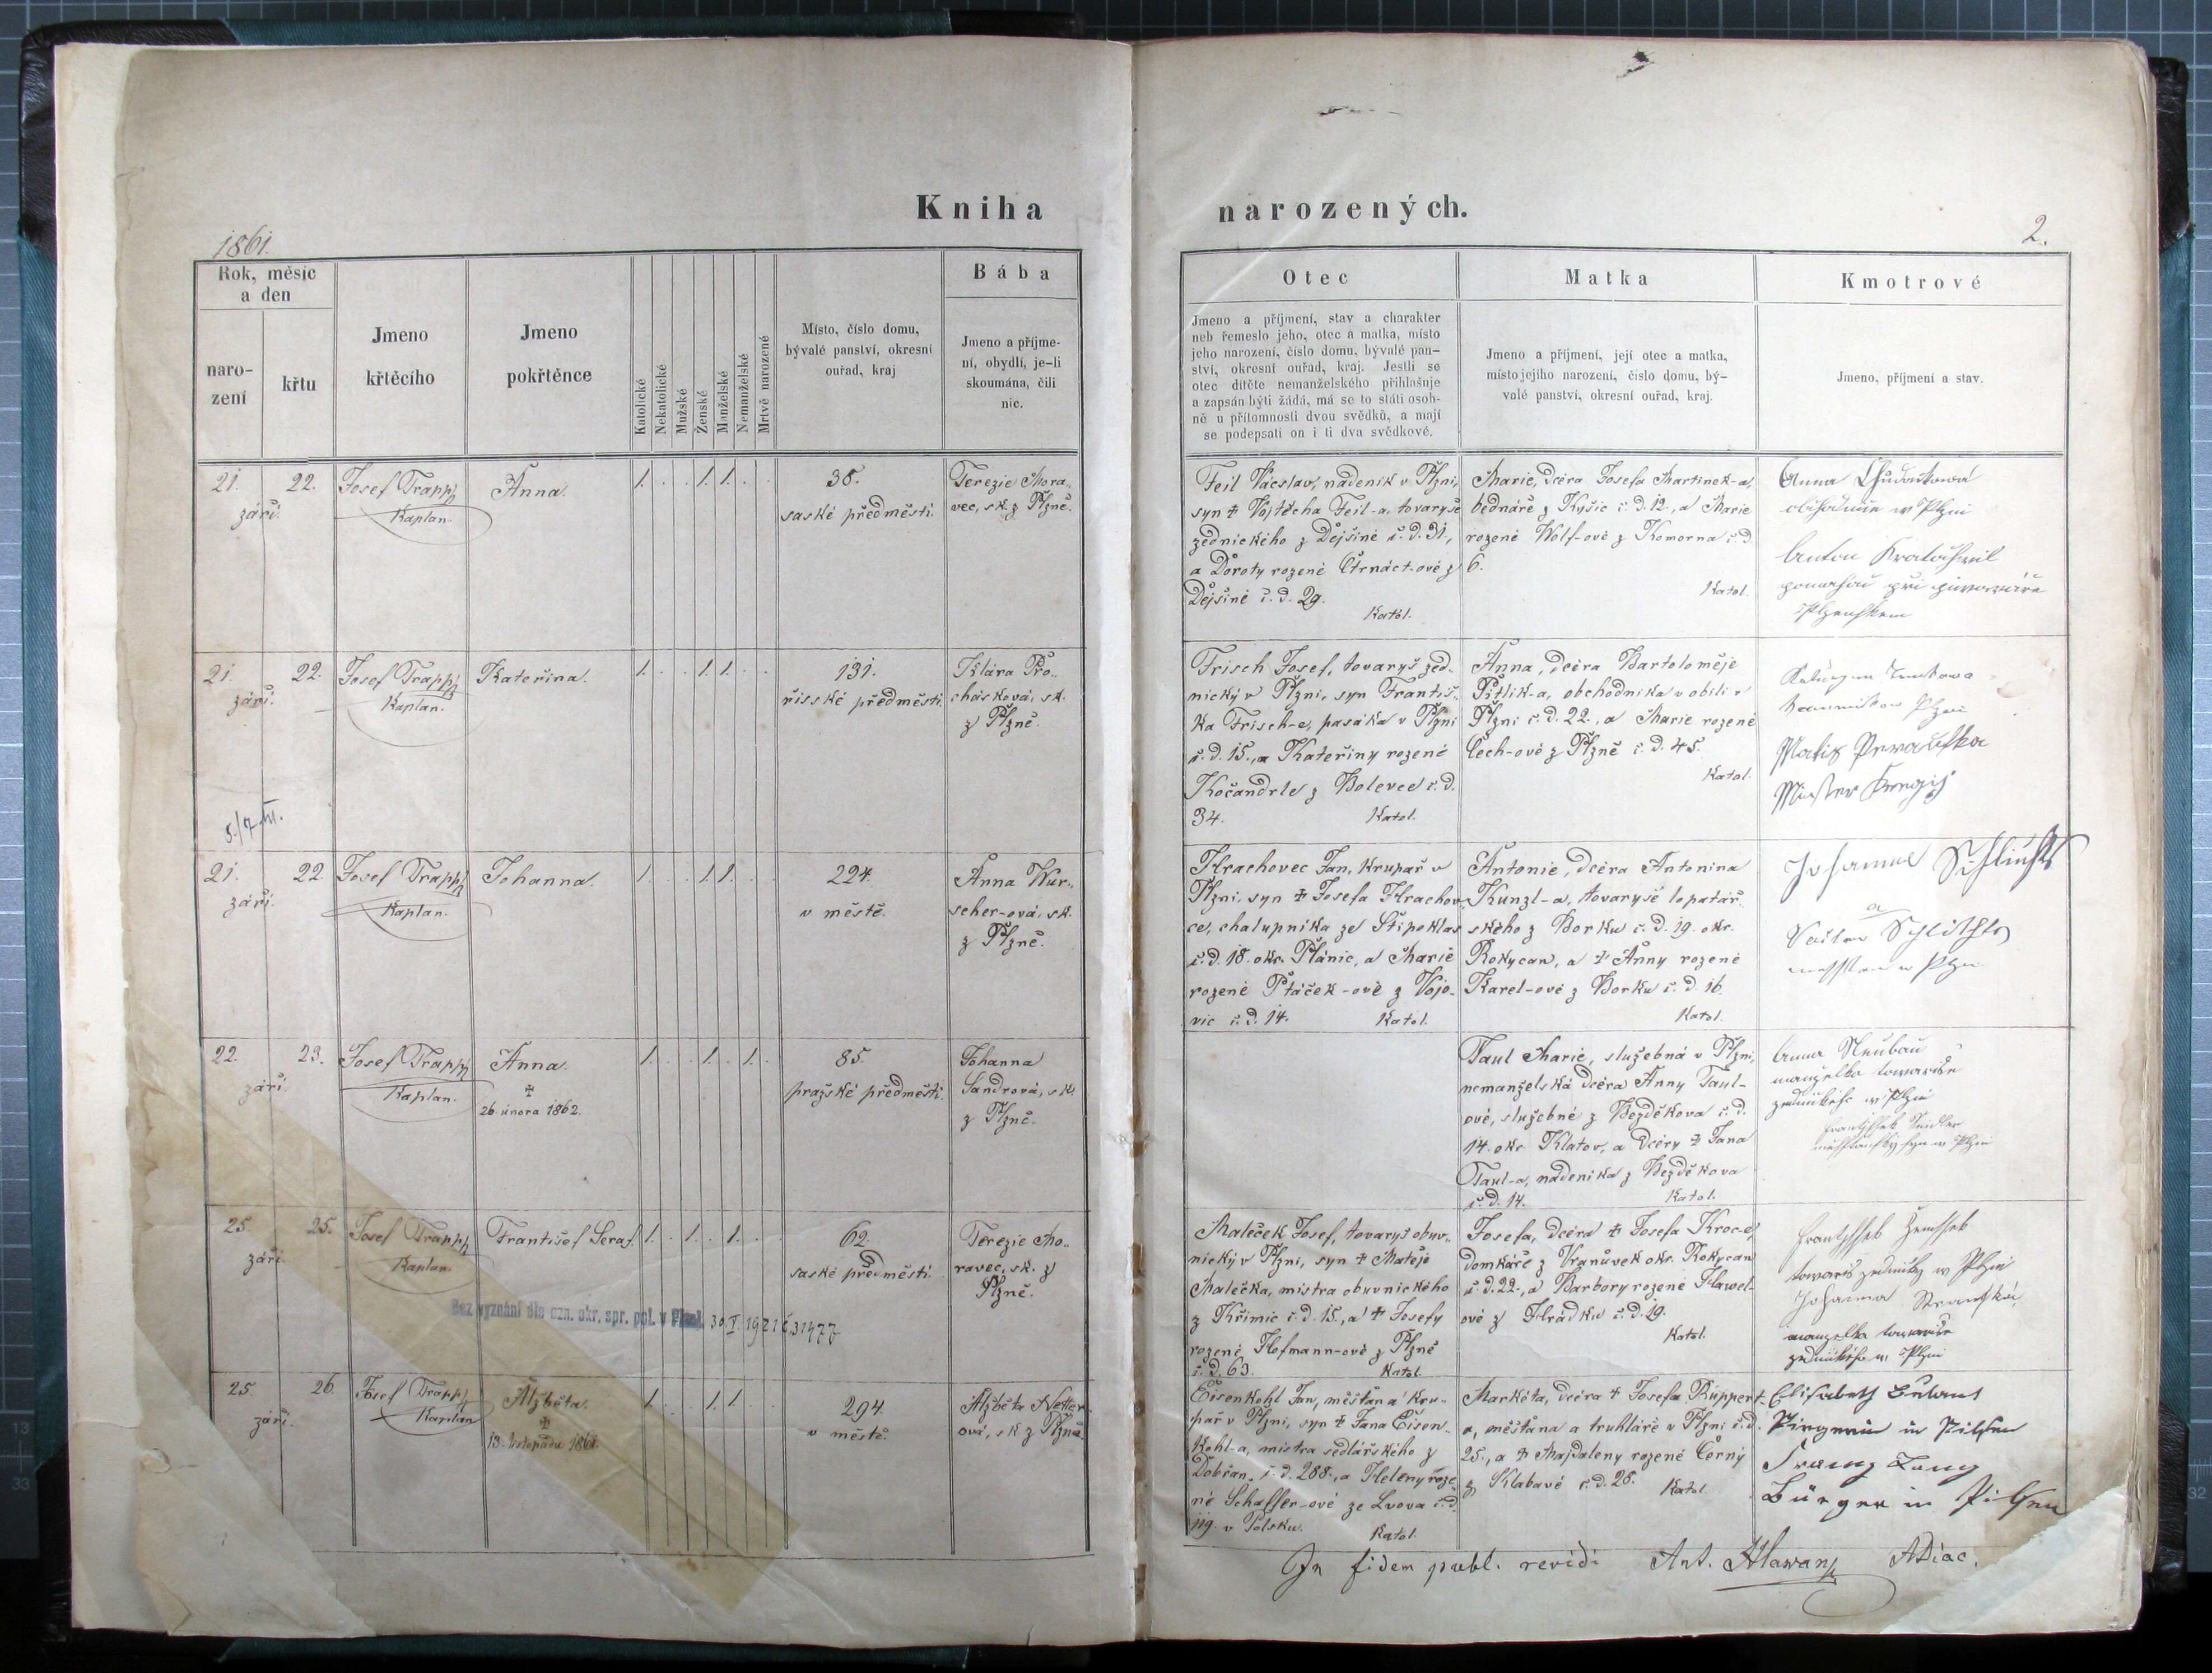 Kniha narozených.
1861.
2.
Rok, měsíc
a den
naro-
zení
křtu
Jmeno
křtěcího
Jmeno
pokřtěnce
Katolické
Nekatolické
Mužské
Ženské
Manželské
Nemanželské
Mrtvě narozené
Místo, číslo domu,
bývalé panství, okresní
ouřad, kraj
Bába
Jmeno a příjme-
ní, obydlí, je-li
skoumána, čili
nic.
Otec
Jmeno a příjmení, stav a charakter
neb řemeslo jeho, otec a matka, místo
jeho narození, číslo domu, bývalé pan-
ství, okresní ouřad, kraj. Jestli se
otec dítěte nemanželského přihlašuje
a zapsán býti žádá, má se to státi osob-
ně u přítomnosti dvou svědků, a mají
se podepsati on i ti dva svědkové.
Matka
Jmeno a příjmení, její otec a matka,
místo jejího narození, číslo domu, bý-
valé panství, okresní ouřad, kraj.
Kmotrové
Jmeno, příjmení a stav.
21. 22.
září.
Josef Trapp
Kaplan.
Anna.
1. . . 1. 1. . .
38.
saské předměstí.
Terezie Mora-
vec, sk. z Plzně.
Feil Václav, nádeník v Plzni,
syn ✝ Vojtěcha Feil-a, tovaryše
zednického z Dejšiné č. d. 31.,
a Doroty rozené Čtrnáct-ové z
Dejšiné č. d. 29.
Katol.
Marie, dcéra Josefa Martinek-a,
bednáře z Kyšic č. d. 12., a Marie
rozené Wolf-ové z Komorna č. d.
6.
Katol.
Anna
w Plzni
Anton Kratochwil
21. 22.
září.
Josef Trapp
Kaplan.
Kateřina.
1. . . 1. 1. . .
131.
říšské předměstí.
Klára Pro-
chásková, sk.
z Plzně.
Frisch Josef, tovaryš zed-
nický v Plzni, syn Františ-
ka Frisch-e, pasáka v Plzni
č. d. 15., a Kateřiny rozené
Kočandrle z Bolevce č. d.
34. Katol.
Anna, dcéra Bartoloměje
Pitlik-a, obchodníka v obilí v
Plzni č. d. 22., a Marie rozené
Čech-ové z Plzně č. d. 45.
Katol.
21. 22.
září.
Josef Trapp
Kaplan.
Johanna.
1. . . 1. 1. . .
224.
v městě.
Anna Wur-
scher-ová, sk.
z Plzně.
Hrachovec Jan, krupař v
Plzni, syn ✝ Josefa Hrachov-
ce, chalupníka ze Štipoklas
č. d. 18. okr. Plánic, a Marie
rozené Ptáček-ové z Vojo-
vic č. d. 14. Katol.
Antonie, dcéra Antonína
Kunzl-a, tovaryše lopatář-
ského z Borku č. d. 19. okr.
Rokycan, a ✝ Anny rozené
Karel-ové z Borku č. d. 16.
Katol.
Johanna
a
22. 23.
září.
Josef Trapp
Kaplan.
Anna.
✝
26. února 1862.
1. . . 1. . 1. .
85.
pražské předměstí.
Johanna
Sandrová, sk.
z Plzně.
Taul Marie, služebná v Plzni,
nemanželská dcéra Anny Taul-
ové, služebné z Bezděkova č. d.
14. okr. Klatov, a dcéry ✝ Jana
Taul-a, nádeníka z Bezděkova
č. d. 14. Katol.
Anna Neubau
manzelka
w Plzni
25. 25.
září.
Josef Trapp
Kaplan.
František Seraf.
1. . 1. . 1. . .
62.
saské předměstí.
Terezie Mo-
ravec, sk. z
Plzně.
Maleček Josef, tovaryš obuv-
nický v Plzni, syn ✝ Matěje
Malečka, mistra obuvnického
z Křimic č. d. 15., a ✝ Josefy
rozené Hofmann-ové z Plzně
č. d. 63. Katol.
Josefa, dcéra ✝ Josefa Kroc-e,
domkáře z Vranůvek okr. Rokycan
č. d. 22., a Barbory rozené Hawel-
ové z Hrádku č. d. 19.
Katol.
w Plzni
Johanna
manzelka
Bez vyznání dle ozn. okr. spr. pol. v Plzni 30 I 1921
25. 26.
září.
Josef Trapp
Kaplan
Alžběta.
✝
13. listopadu 1861.
1. . . 1. 1. . .
294.
v městě.
Alžběta Netter-
ová, sk. z Plzně.
Eisenkohl Jan, měšťan a kru-
pař v Plzni, syn ✝ Jana Eisen-
kohl-a, mistra sedlářského z
Dobřan č. d. 288., a Heleny roze-
né Schaffer-ové ze Lvova č. d.
119. v Polsku. Katol.
Markéta, dcéra ✝ Josefa Ruppert-
a, měšťana a truhláře v Plzni č. d.
25., a ✝ Majdaleny rozené Černý
z Klabavé č. d. 28. Katol.
Elisabeth
in Pilsen
Franz Lang
Bürger in Pilsen
In fidem publ. revidi Ant. Hlawan